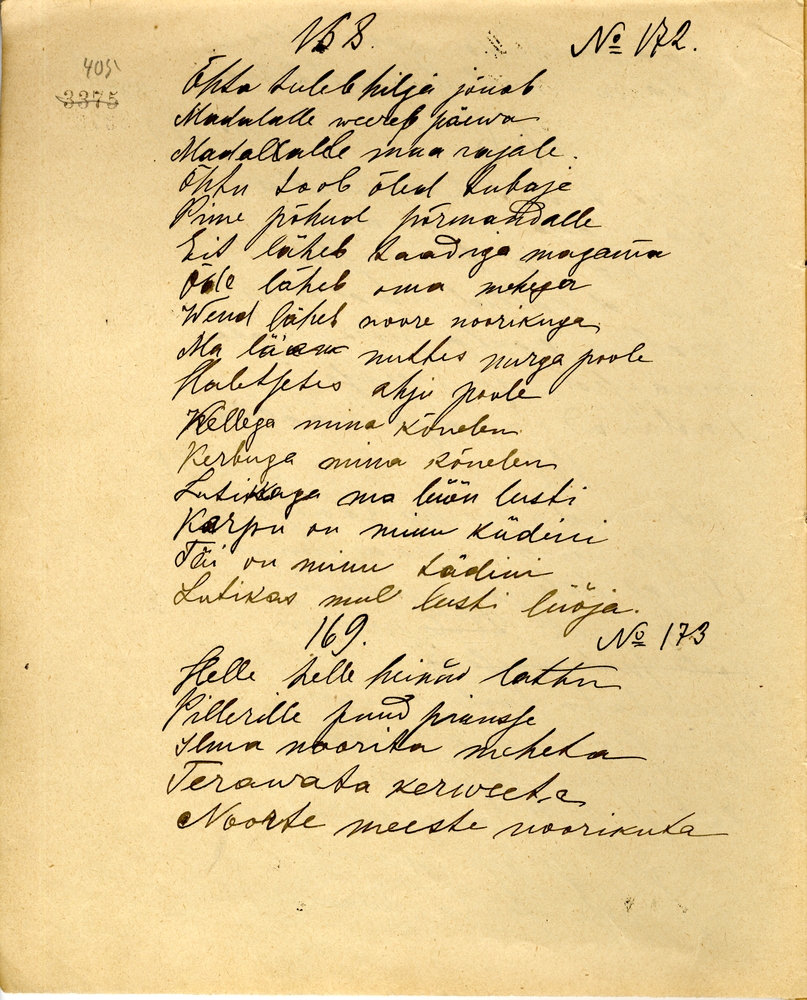 168. No 172.
405
3375
Õhta tuleb hilja jõuab
Madalalle weereb päewa
Madallalle maa rajale.
Õhtu toob õled tubaje
Pime põhud põrmandalle
Eit läheb taadiga magama
Õde läheb oma mehega
Wend läheb noore noorikuga
Ma lään nuttes nurga poole
Haletsetes ahju poole
Kellega mina kõnelen
Kerbuga mina kõnelen
Lutikaga ma lüön lusti
Karpu on minu küdini
Täi on minu tädini
Lutikas mul lusti lüöja.
169. No 173
Helle helle heinäd lattu
Pillerille puud
Ilma noorita meheta
Terawata kerweeta
Noorte meeste noorikuta